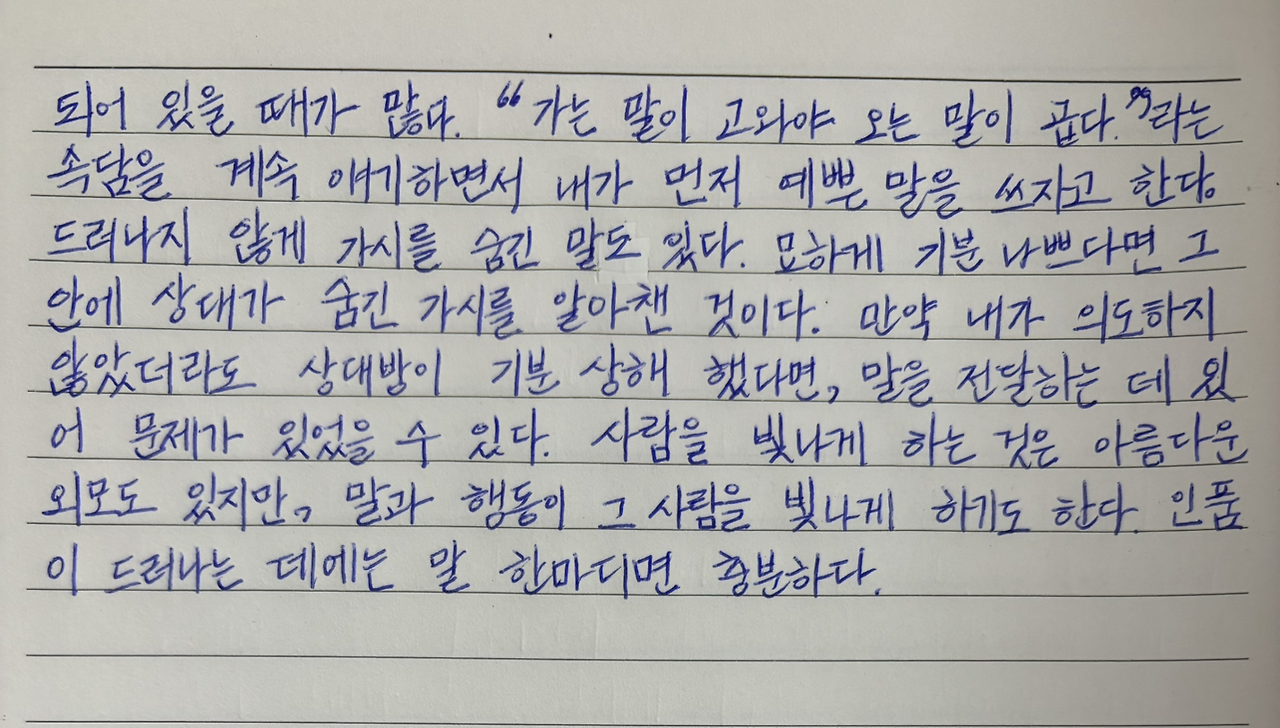 되어 있을 때가 많다. “가는 말이 고와야 오는 말이 곱다.”라는
속담을 계속 얘기하면서 내가 먼저 예쁜 말을 쓰자고 한다.
드러나지 않게 가시를 숨긴 말도 있다. 묘하게 기분 나쁘다면 그
안에 상대가 숨긴 가시를 알아챈 것이다. 만약 내가 의도하지
않았더라도 상대방이 기분 상해 했다면, 말을 전달하는 데 있
어 문제가 있었을 수 있다. 사람을 빛나게 하는 것은 아름다운
외모도 있지만, 말과 행동이 그 사람을 빛나게 하기도 한다. 인품
이 드러나는 데에는 말 한마디면 충분하다.